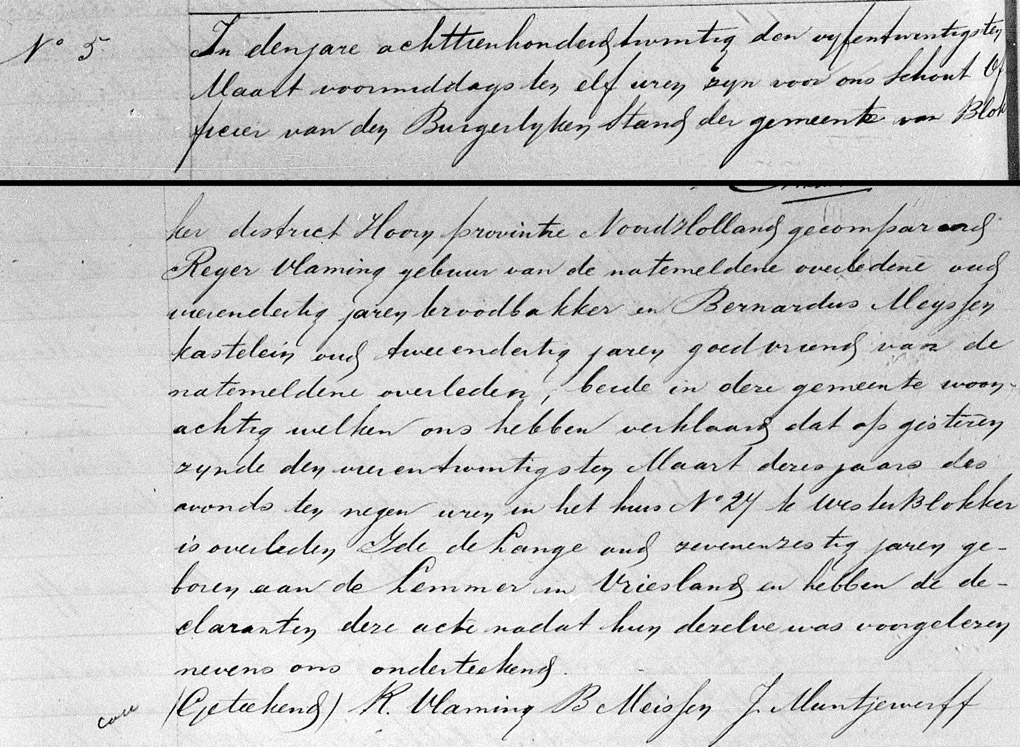 N° 5
In den jare achttienhonderd twintig den vyfentwintigsten
Maart voormiddags ten elf uren zyn voor ons Schout Of
ficier van den Burgerlyken Stand der gemeente van Blok
ker district Hoorn provintie Noord Holland gecompareerd
Reyer Vlaming gebuur van de natemeldene overledene oud
vierendertig jaren broodbakker en Bernardus Meyssen
kastelein oud tweeendertig jaren goed vriend van de
natemeldene overleden, beide in deze gemeente woon-
achtig welken ons hebben verklaard dat op gisteren
zynde den vierentwintigsten Maart dezes jaars des
avonds ten negen uren in het huis N° 27 te WesterBlokker
is overleden Ide de Lange oud zevenenzestig jaren ge-
boren aan de Lemmer in Vriesland en hebben de de-
claranten deze acte nadat hun dezelve was voorgelezen
nevens ons onderteekend.
(Geteekend) R. Vlaming B Meissen J Muntjewerff